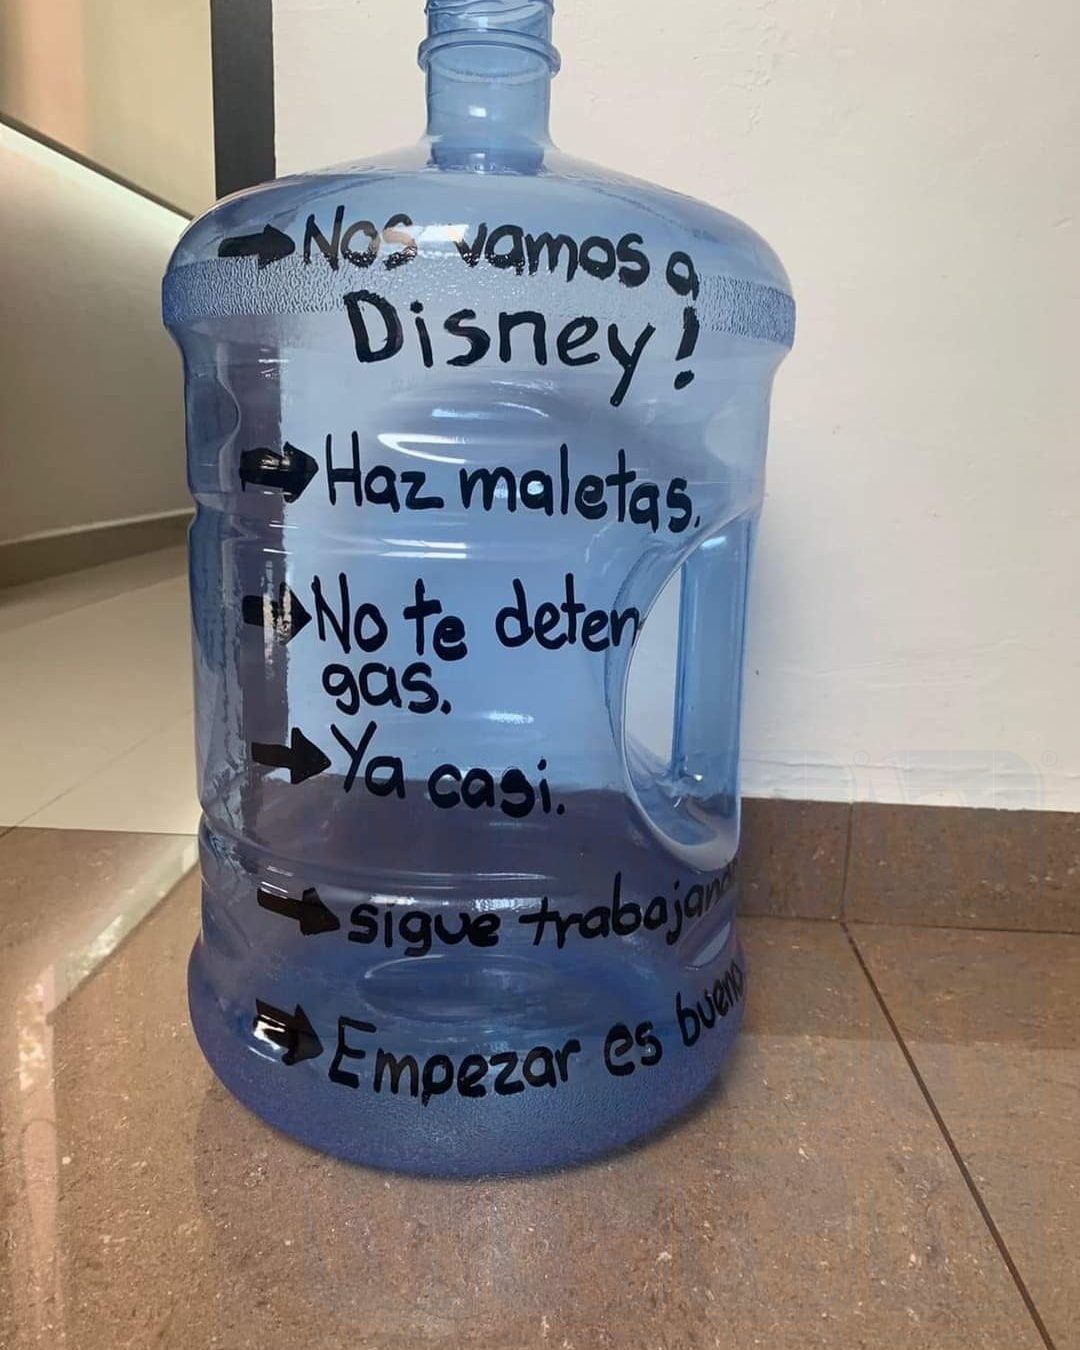 Nos vamos a
Disney!
Haz maletas.
No te deten
gas.
Ya casi.
sigue trabajando
Empezar es bueno